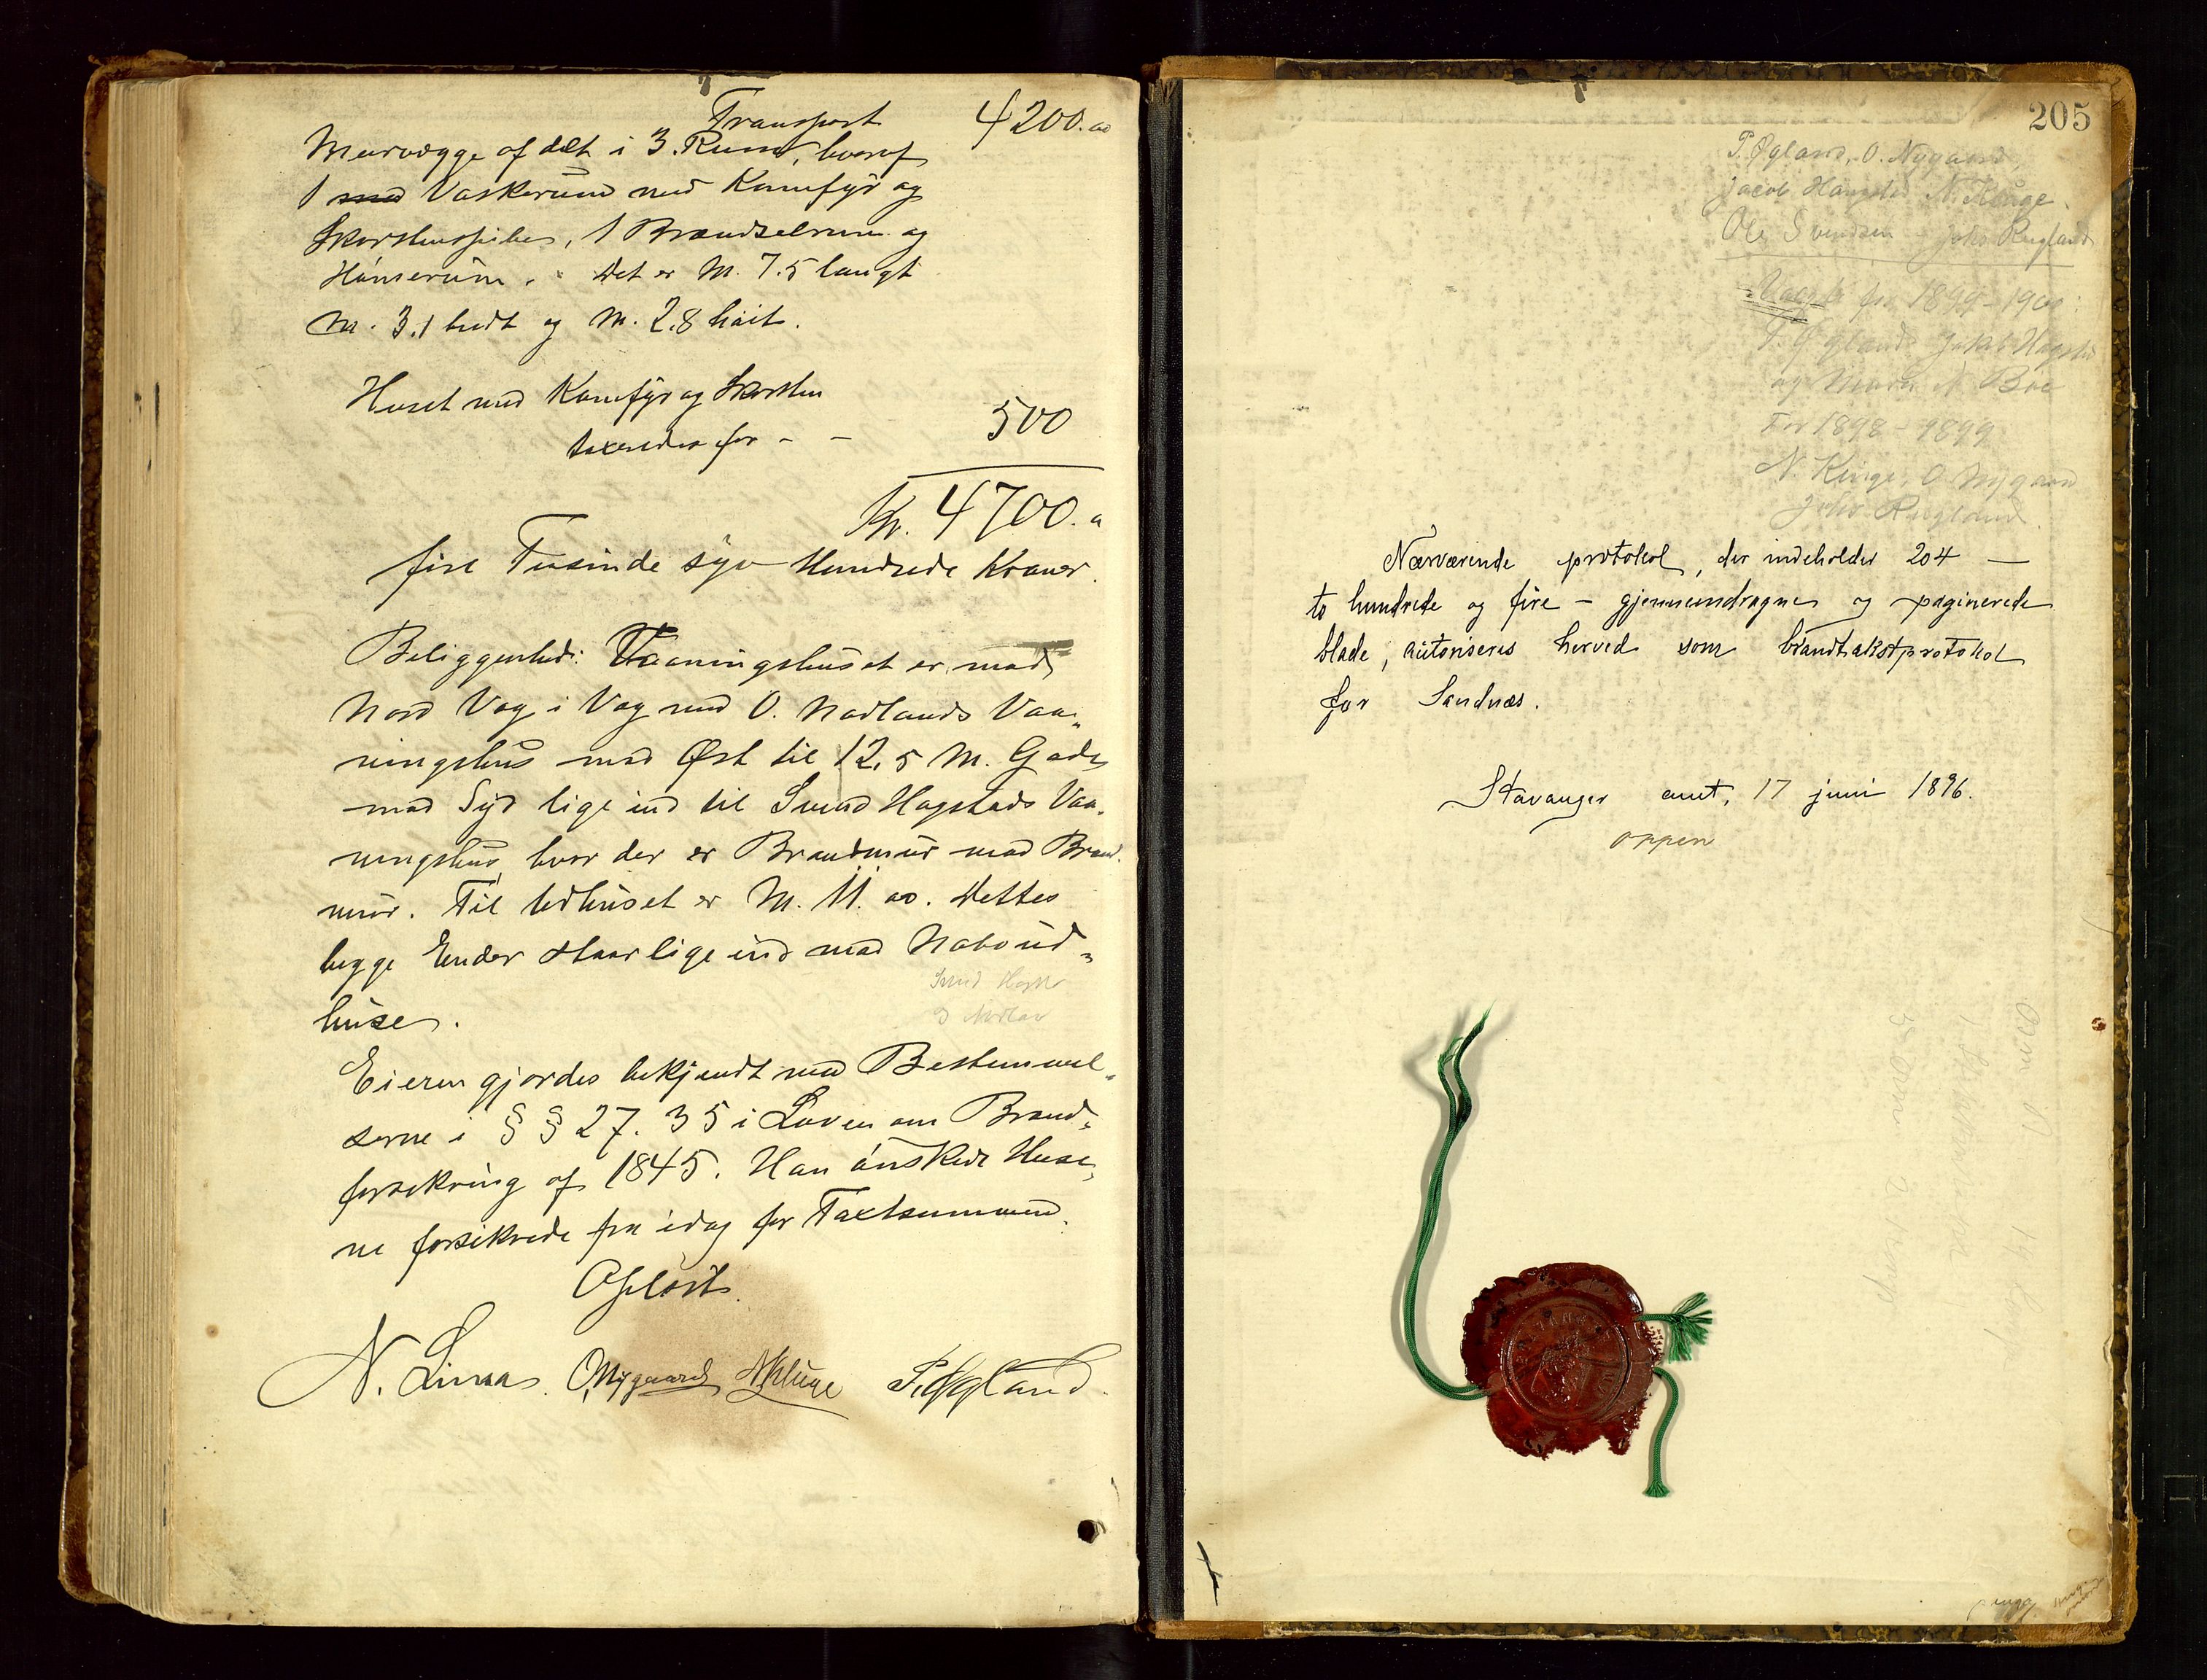 Transport 4200.00
Murvægge afdelt i 3. Rum, hvoraf
1 med Vaskerum med Komfyr og
Skorstenspibe, 1 Brændselrum og
Hönserum. Det er M. 7.5 langt
M. 3.1 bredt og M. 2.8 höit.
Huset med Komfyr og Skorsten
taxeredes for - - 500
Kr. 4700.
fire Tusinde syv Hundrede Kroner.
Beliggenhed: Vaaningshuset er mod
Nord Væg i Væg med O. Nødlands Vaa-
ningshus mod Øst til 12,5 M. Gade
mod Syd lige ind til Svend Hagstads Vaa-
ningshus, hvor der er Brandmur mod Brand-
mur. Til Udhuset er M. 11.00. Dettes
begge Ender staar lige ind mod Naboud-
huse.
Eieren gjordes bekjendt med Bestemmel-
serne i §§ 27. 35 i Loven om Brand-
forsikring af 1845. Han önskede Huse-
ne forsikrede fra idag for Taxtsummen.
Afslört
N. Limaa. O. Nygaard N Kluge P. Øgland.
205
P. Øgland, O. Nygaard,
Jacob Hagstad N. Kluge.
Ole Svendsen Johs Rugland
Valgte for 1899-1900:
P. Øgland Jakob Hagstad
og N. Boe
For 1898-1899
N. Kluge, O Nygaard
Johs Rugland.
Nærværende protokol, der indeholder 204 —
to hundrede og fire — gjennemdragne og paginerede
blade, autoriseres herved som brandtakstprotokol
for Sandnæs.
Stavanger amt, 17 juni 1896.
oppen